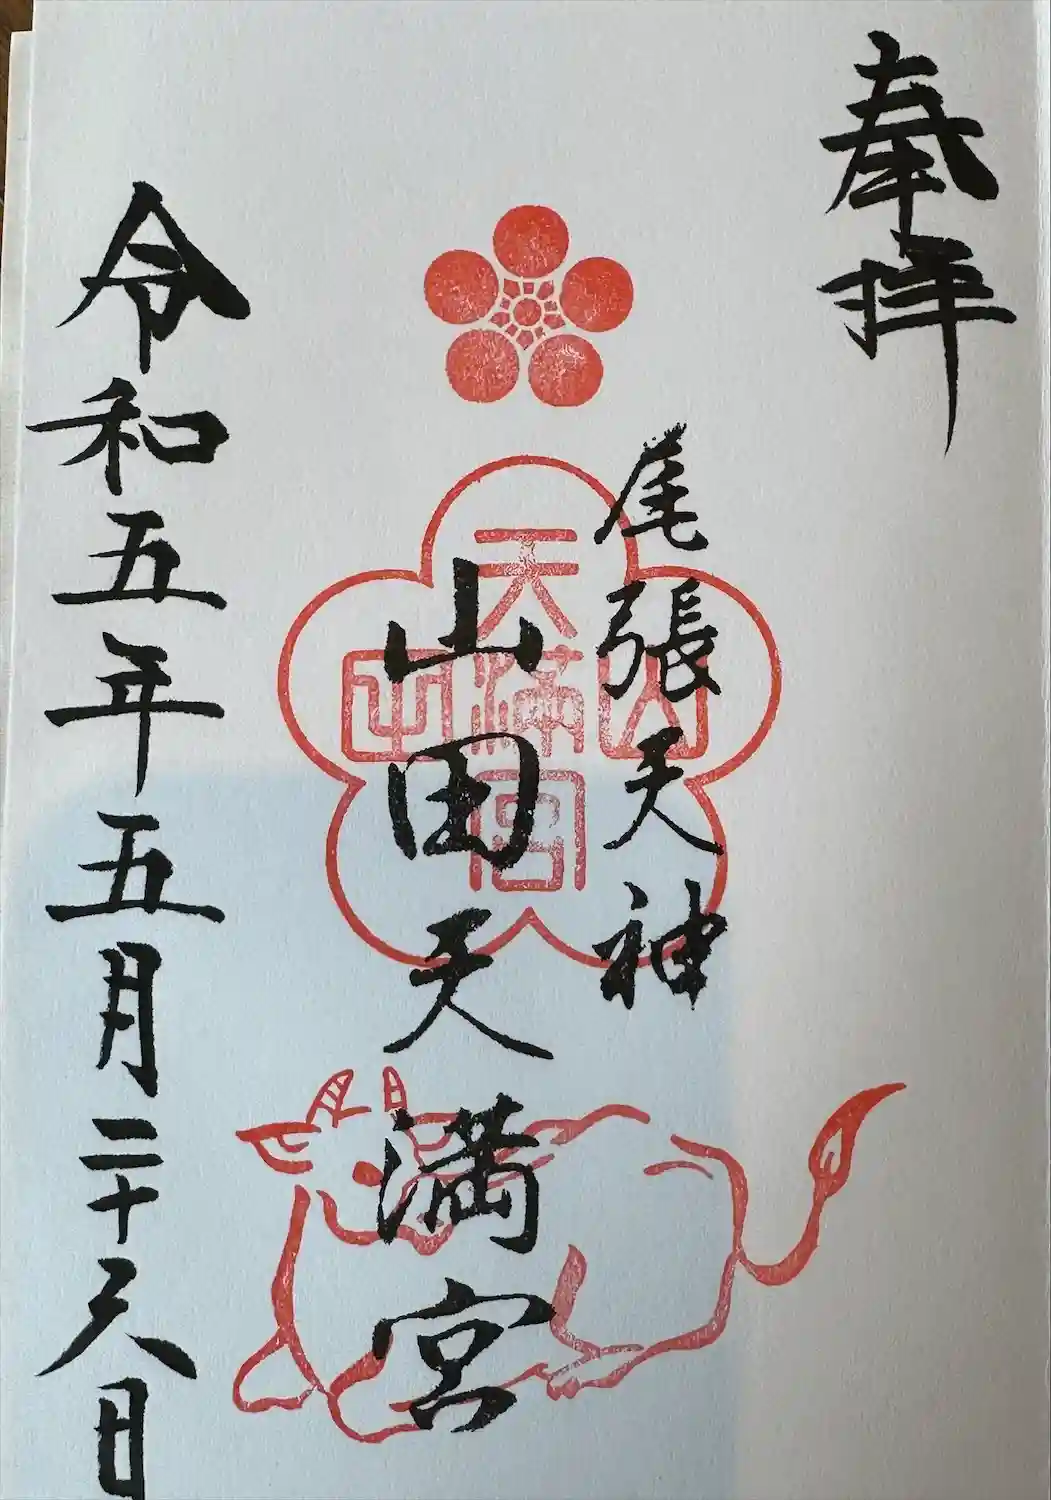 奉拝
尾張天神
山田天満宮
天満宮
山
令和五年五月二十日